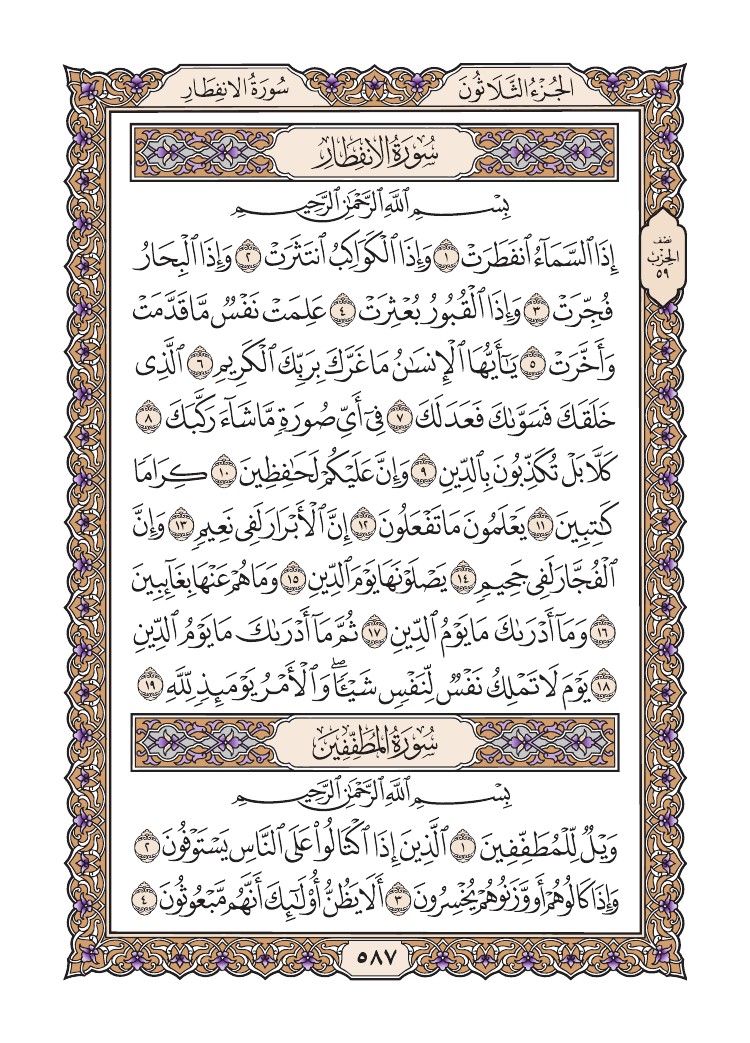 الجُزْءُ الثَّلَاثُونَ
سُورَةُ الِانفِطَارِ
سُورَةُ الِانفِطَارِ
بِسْمِ ٱللَّهِ ٱلرَّحْمَٰنِ ٱلرَّحِيمِ
إِذَا ٱلسَّمَآءُ ٱنفَطَرَتْ ١ وَإِذَا ٱلْكَوَاكِبُ ٱنتَثَرَتْ ٢ وَإِذَا ٱلْبِحَارُ
فُجِّرَتْ ٣ وَإِذَا ٱلْقُبُورُ بُعْثِرَتْ ٤ عَلِمَتْ نَفْسٌ مَّا قَدَّمَتْ
وَأَخَّرَتْ ٥ يَٰٓأَيُّهَا ٱلْإِنسَٰنُ مَا غَرَّكَ بِرَبِّكَ ٱلْكَرِيمِ ٦ ٱلَّذِى
خَلَقَكَ فَسَوَّىٰكَ فَعَدَلَكَ ٧ فِىٓ أَىِّ صُورَةٍ مَّا شَآءَ رَكَّبَكَ ٨
كَلَّا بَلْ تُكَذِّبُونَ بِٱلدِّينِ ٩ وَإِنَّ عَلَيْكُمْ لَحَٰفِظِينَ ١٠ كِرَامًا
كَٰتِبِينَ ١١ يَعْلَمُونَ مَا تَفْعَلُونَ ١٢ إِنَّ ٱلْأَبْرَارَ لَفِى نَعِيمٍ ١٣ وَإِنَّ
ٱلْفُجَّارَ لَفِى جَحِيمٍ ١٤ يَصْلَوْنَهَا يَوْمَ ٱلدِّينِ ١٥ وَمَا هُمْ عَنْهَا بِغَآئِبِينَ
١٦ وَمَآ أَدْرَىٰكَ مَا يَوْمُ ٱلدِّينِ ١٧ ثُمَّ مَآ أَدْرَىٰكَ مَا يَوْمُ ٱلدِّينِ
١٨ يَوْمَ لَا تَمْلِكُ نَفْسٌ لِّنَفْسٍ شَيْـًٔا ۖ وَٱلْأَمْرُ يَوْمَئِذٍ لِّلَّهِ ١٩
سُورَةُ المُطَفِّفِينَ
بِسْمِ ٱللَّهِ ٱلرَّحْمَٰنِ ٱلرَّحِيمِ
وَيْلٌ لِّلْمُطَفِّفِينَ ١ ٱلَّذِينَ إِذَا ٱكْتَالُوا۟ عَلَى ٱلنَّاسِ يَسْتَوْفُونَ ٢
وَإِذَا كَالُوهُمْ أَو وَّزَنُوهُمْ يُخْسِرُونَ ٣ أَلَا يَظُنُّ أُو۟لَٰٓئِكَ أَنَّهُم مَّبْعُوثُونَ ٤
نصف
الحِزْب
٥٩
٥٨٧